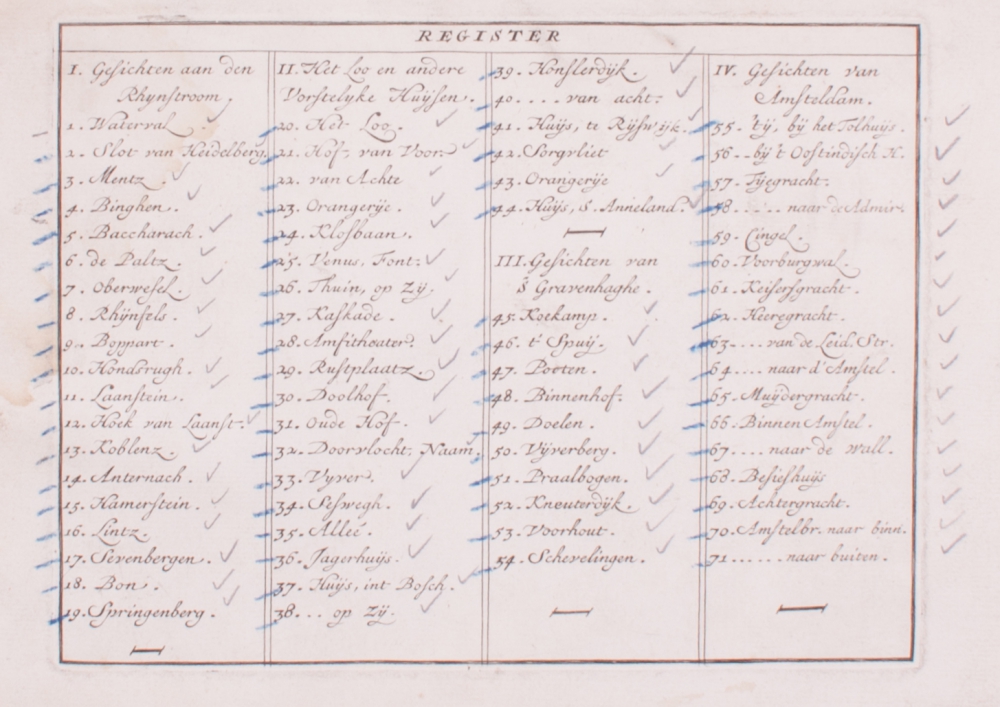 REGISTER
I. Gesichten aan den
Rhynstroom.
1. Waterval.
2. Slot van Heidelberg.
3. Mentz.
4. Binghen.
5. Baccharach.
6. de Paltz.
7. Oberwesel.
8. Rhÿnfels.
9. Boppart.
10. Hondsrugh.
11. Laanstein.
12. Hoek van Laanst.
13. Koblenz.
14. Anternach.
15. Hamerstein.
16. Lintz.
17. Sevenbergen.
18. Bon.
19. Springenberg.
II. Het Loo en andere
Vorstelyke Huÿsen.
20. Het Loo.
21. Hof, van Voor.
22. van Achte
23. Orangerÿe.
24. Klosbaan.
25. Venus, Font.
26. Thuin, op Zÿ.
27. Kaskade.
28. Amfitheater.
29. Rustplaatz.
30. Doolhof.
31. Oude Hof.
32. Doorvlocht. Naam.
33. Vÿver.
34. Seswegh.
35. Alleé.
36. Jagerhuÿs.
37. Huÿs, int Bosch.
38. . . . op Zÿ.
39. Honslerdÿk.
40. . . . . van acht.
41. Huÿs, te Rÿswÿk.
42. Sorgvliet
43. Orangerÿe
44. Huÿs, S. Anneland.
III. Gesichten van
S Gravenhaghe.
45. Koekamp.
46. t' Spuÿ.
47. Pooten.
48. Binnenhof.
49. Doelen.
50. Vÿverberg.
51. Praalbogen.
52. Kneuterdÿk.
53. Voorhout.
54. Schevelingen.
IV. Gesichten van
Amsteldam.
55. 'tÿ, bÿ het Tolhuÿs.
56 . . bÿ 't Oostindisch H.
57. Tÿegracht.
58 . . . . . naar de Admir.
59. Cingel.
60. Voorburgwal.
61. Keisersgracht.
62. Heeregracht.
63 . . . . van de Leid. Str.
64 . . . . naar d' Amstel.
65. Muÿdergracht.
66. Binnen Amstel.
67 . . . . naar de wall.
68. Besieshuÿs
69. Achtergracht.
70. Amstelbr. naar binn.
71 . . . . . . naar buiten.